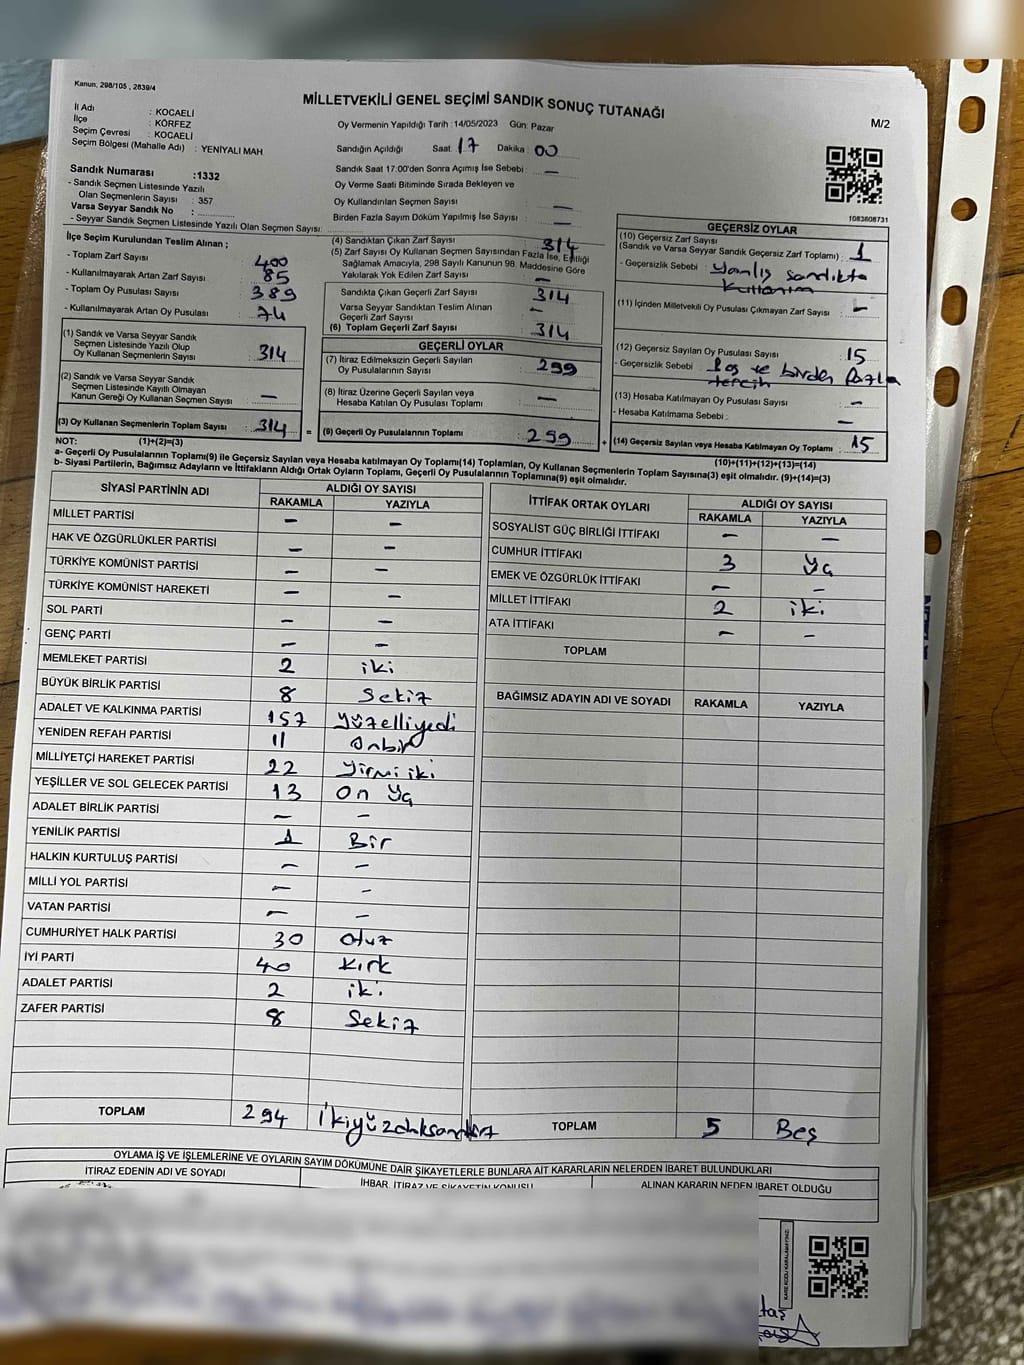 Kanun; 298/105 , 2839/4
MİLLETVEKİLİ GENEL SEÇİMİ SANDIK SONUÇ TUTANAĞI
M/2
İl Adı : KOCAELİ
İlçe : KÖRFEZ
Seçim Çevresi : KOCAELİ
Seçim Bölgesi (Mahalle Adı) : YENİYALI MAH
Oy Vermenin Yapıldığı Tarih :14/05/2023 Gün: Pazar
Sandığın Açıldığı Saat: 17 Dakika: 00
Sandık Saat 17:00'den Sonra Açımış İse Sebebi : —
Oy Verme Saati Bitiminde Sırada Bekleyen ve
Oy Kullandırılan Seçmen Sayısı : —
Birden Fazla Sayım Döküm Yapılmış İse Sayısı : —
1083808731
Sandık Numarası :1332
- Sandık Seçmen Listesinde Yazılı
Olan Seçmenlerin Sayısı : 357
Varsa Seyyar Sandık No :
- Seyyar Sandık Seçmen Listesinde Yazılı Olan Seçmen Sayısı:
İlçe Seçim Kurulundan Teslim Alınan ;
- Toplam Zarf Sayısı 400
- Kullanılmayarak Artan Zarf Sayısı 85
- Toplam Oy Pusulası Sayısı 389
- Kullanılmayarak Artan Oy Pusulası : 74
(1) Sandık ve Varsa Seyyar Sandık
Seçmen Listesinde Yazılı Olup
Oy Kullanan Seçmenlerin Sayısı : 314
(2) Sandık ve Varsa Seyyar Sandık
Seçmen Listesinde Kayıtlı Olmayan
Kanun Gereği Oy Kullanan Seçmen Sayısı : —
(3) Oy Kullanan Seçmenlerin Toplam Sayısı : 314 =
(4) Sandıktan Çıkan Zarf Sayısı : 314
(5) Zarf Sayısı Oy Kullanan Seçmen Sayısından Fazla İse, Eşitliği
Sağlamak Amacıyla, 298 Sayılı Kanunun 98. Maddesine Göre
Yakılarak Yok Edilen Zarf Sayısı : —
Sandıkta Çıkan Geçerli Zarf Sayısı : 314
Varsa Seyyar Sandıktan Teslim Alınan
Geçerli Zarf Sayısı : —
(6) Toplam Geçerli Zarf Sayısı : 314
GEÇERLİ OYLAR
(7) İtiraz Edilmeksizin Geçerli Sayılan
Oy Pusulalarının Sayısı : 299
(8) İtiraz Üzerine Geçerli Sayılan veya
Hesaba Katılan Oy Pusulası Toplamı : —
(9) Geçerli Oy Pusulalarının Toplamı : 299 +
GEÇERSİZ OYLAR
(10) Geçersiz Zarf Sayısı
(Sandık ve Varsa Seyyar Sandık Geçersiz Zarf Toplamı) : 1
- Geçersizlik Sebebi : yanlış sandıkta
kullanım
(11) İçinden Milletvekili Oy Pusulası Çıkmayan Zarf Sayısı : —
(12) Geçersiz Sayılan Oy Pusulası Sayısı : 15
- Geçersizlik Sebebi : Boş ve birden fazla
tercih
(13) Hesaba Katılmayan Oy Pusulası Sayısı : —
- Hesaba Katılmama Sebebi : —
(14) Geçersiz Sayılan veya Hesaba Katılmayan Oy Toplamı : 15
NOT: (1)+(2)=(3)
(10)+(11)+(12)+(13)=(14)
a- Geçerli Oy Pusulaları Toplamı(9) ile Geçersiz Sayılan veya Hesaba katılmayan Oy Toplamı(14) Toplamları, Oy Kullanan Seçmenlerin Toplam Sayısına(3) eşit olmalıdır. (9)+(14)=(3)
b- Siyasi Partilerin, Bağımsız Adayların ve İttifakların Aldığı Ortak Oyların Toplamı, Geçerli Oy Pusulalarının Toplamına(9) eşit olmalıdır.
SİYASİ PARTİNİN ADI ALDIĞI OY SAYISI
RAKAMLA YAZIYLA
MİLLET PARTİSİ — —
HAK VE ÖZGÜRLÜKLER PARTİSİ — —
TÜRKİYE KOMÜNİST PARTİSİ — —
TÜRKİYE KOMÜNİST HAREKETİ — —
SOL PARTİ — —
GENÇ PARTİ — —
MEMLEKET PARTİSİ 2 iki
BÜYÜK BİRLİK PARTİSİ 8 Sekiz
ADALET VE KALKINMA PARTİSİ 157 Yüzelliyedi
YENİDEN REFAH PARTİSİ 11 Onbir
MİLLİYETÇİ HAREKET PARTİSİ 22 Yirmi iki
YEŞİLLER VE SOL GELECEK PARTİSİ 13 On Üç
ADALET BİRLİK PARTİSİ — —
YENİLİK PARTİSİ 1 Bir
HALKIN KURTULUŞ PARTİSİ — —
MİLLİ YOL PARTİSİ — —
VATAN PARTİSİ — —
CUMHURİYET HALK PARTİSİ 30 Otuz
İYİ PARTİ 40 Kırk
ADALET PARTİSİ 2 iki
ZAFER PARTİSİ 8 Sekiz
TOPLAM 294 İkiyüzdoksandört
İTTİFAK ORTAK OYLARI ALDIĞI OY SAYISI
RAKAMLA YAZIYLA
SOSYALİST GÜÇ BİRLİĞİ İTTİFAKI — —
CUMHUR İTTİFAKI 3 Üç
EMEK VE ÖZGÜRLÜK İTTİFAKI — —
MİLLET İTTİFAKI 2 iki
ATA İTTİFAKI — —
TOPLAM
BAĞIMSIZ ADAYIN ADI VE SOYADI RAKAMLA YAZIYLA
TOPLAM 5 Beş
OYLAMA İŞ VE İŞLEMLERİNE VE OYLARIN SAYIM DÖKÜMÜNE DAİR ŞİKAYETLERLE BUNLARA AİT KARARLARIN NELERDEN İBARET BULUNDUKLARI
İTİRAZ EDENİN ADI VE SOYADI İHBAR, İTİRAZ VE ŞİKAYETİN KONUSU ALINAN KARARIN NEDEN İBARET OLDUĞU